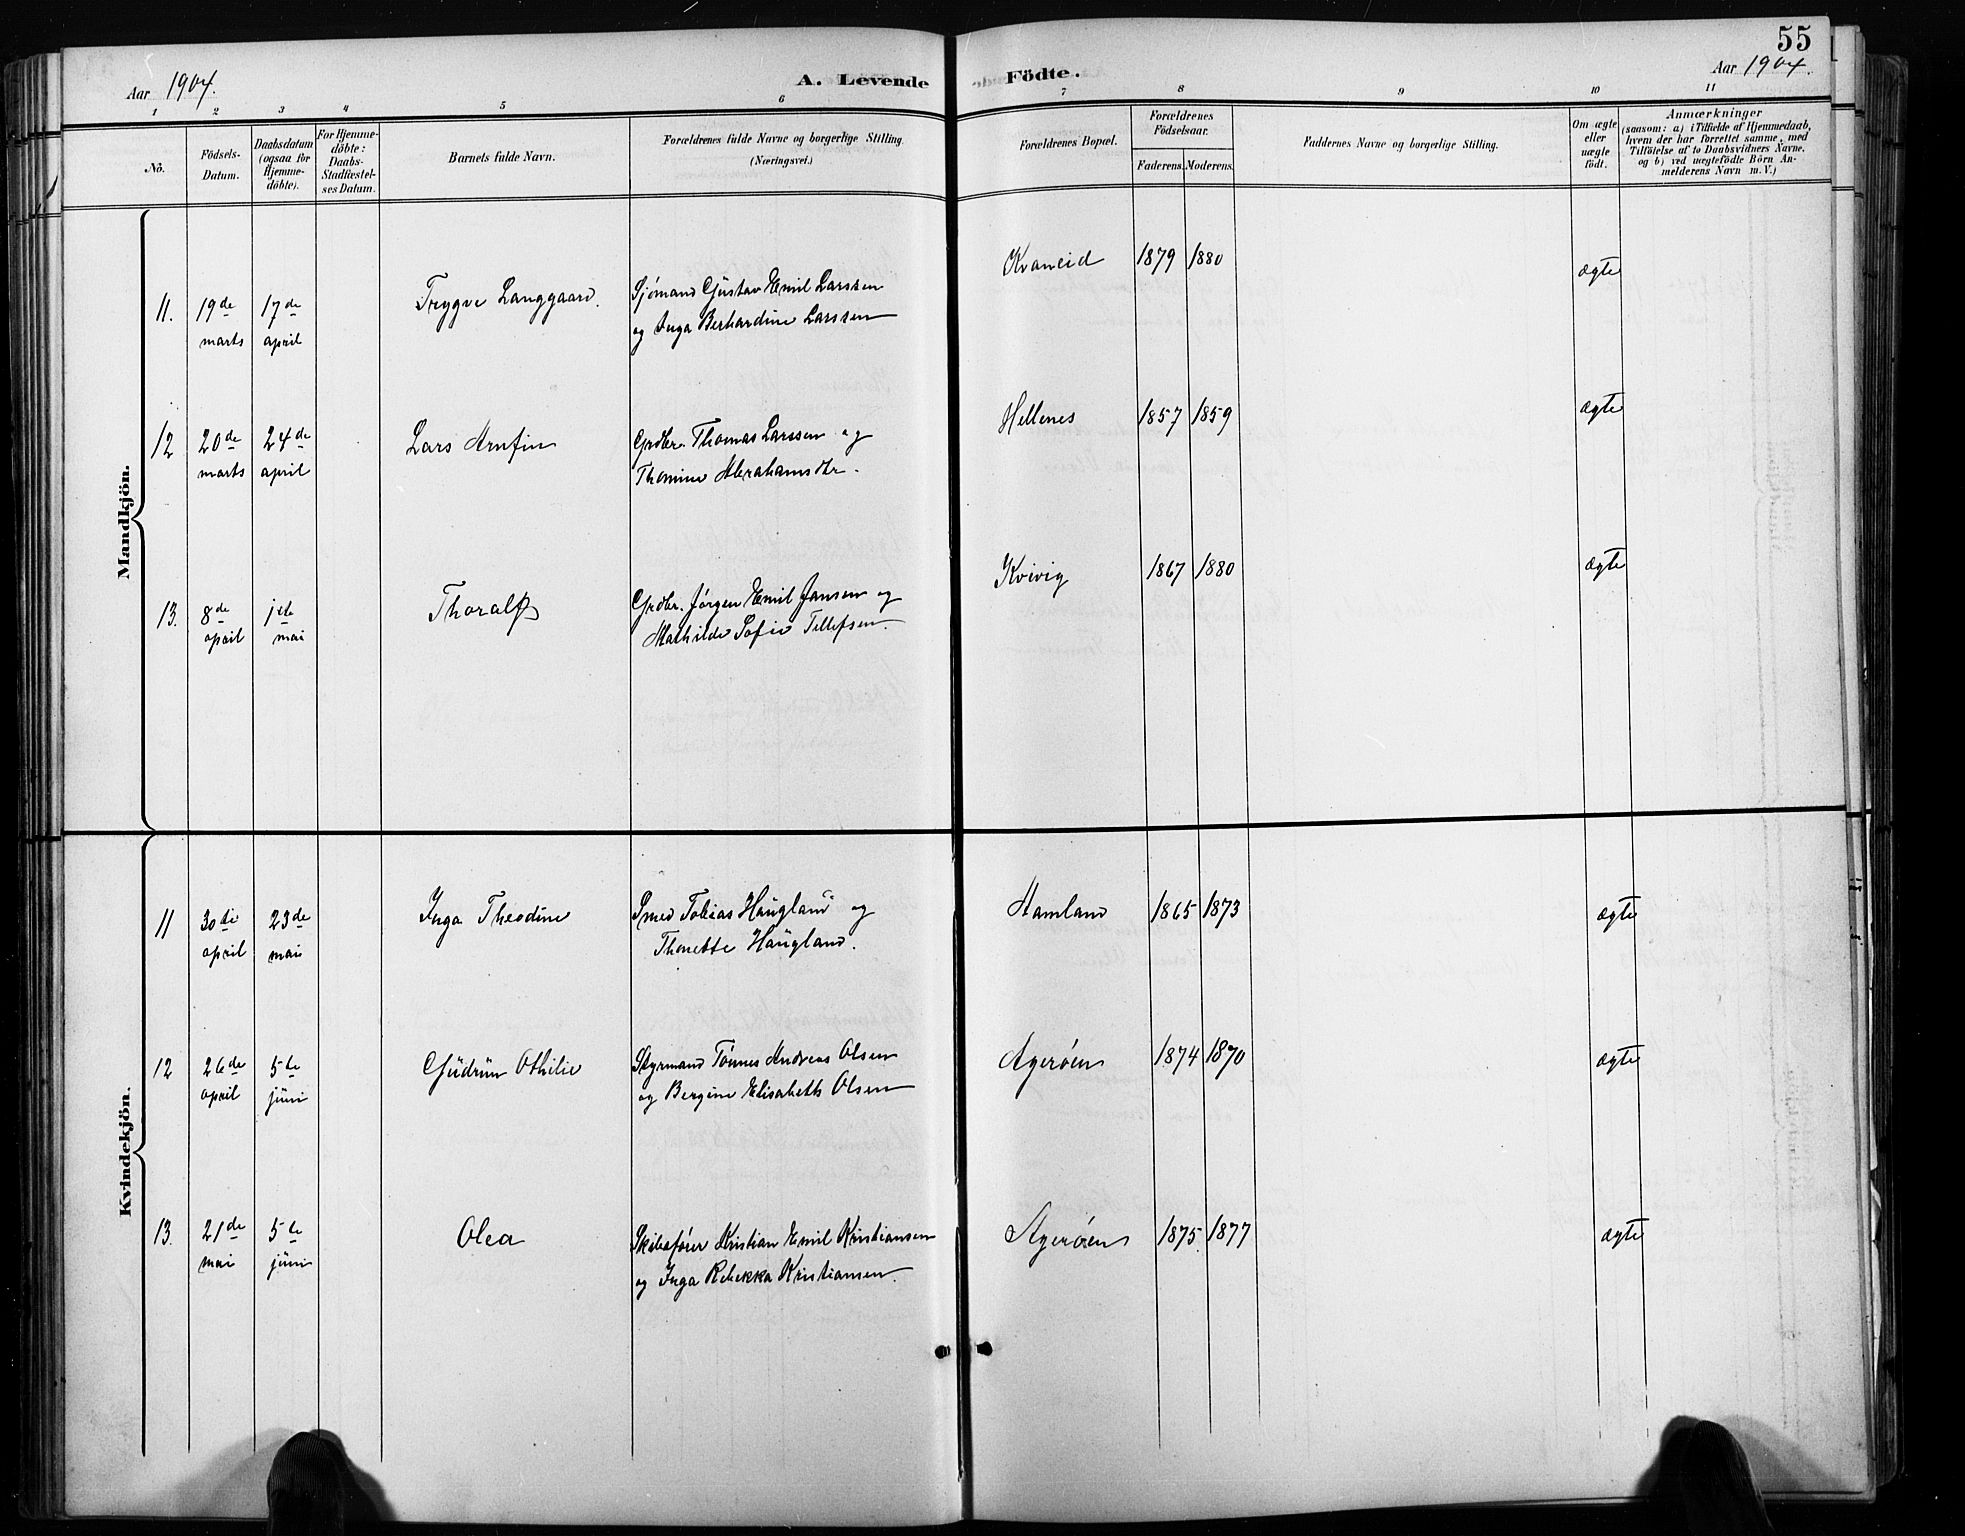 55
Aar 1904.
A. Levende Födte.
Aar 1904.
1 2 3 4 5 6 7 8 9 10 11
No.
Födsels-
Datum.
Daabsdatum
(ogsaa for
Hjemme-
döbte).
For Hjemme-
döbte:
Daabs-
Stadfæstel-
ses Datum.
Barnets fulde Navn.
Forældrenes fulde Navne og borgerlige Stilling
(Næringsvei.)
Forældrenes Bopæl.
Forældrenes
Födselsaar.
Faderens.
Moderens.
Faddernes Navne og borgerlige Stilling.
Om ægte
eller
uægte
födt.
Anmærkninger
(saasom: a) i Tilfælde af Hjemmedaab,
hvem der har forrettet samme, med
Tilföielse af to Daabsvidners Navne.
og b) ved uægtefödte Börn An-
melderens Navn m. V.)
Mandkjön.
11. 19de marts 17de april Trygve Langgaard. Sjómand Gustav Emil Larssen
og Inga Berhardine Larssen
Kvaneid 1879 1880 ægte
12 20de marts 24de april Lars Arnfin Grdbr. Thomas Larssen og
Thomine Abrahamsdtr.
Hellenes 1857 1859 ægte
13. 8de april 1ste mai Thoralf Grdbr. Jórgen Emil Jansen og
Mathilde Sofie Tellefsen.
Kvivig 1867 1880 ægte
Kvindekjön.
11 30te april 23de mai Inga Theodine Smed Tobias Haugland og
Thonette Haugland.
Hamland 1865 1873 ægte
12 26de april 5te juni Gudrun Othilie Styrmand Tónnes Andreas Olsen
og Bergine Elisabeth Olsen
Ageróen 1874 1870 ægte
13. 21de mai 5te juni Olea Skibsfórer Kristian Emil Kristiansen
og Inga Rebekka Kristiansen.
Ageróen 1875. 1877 ægte